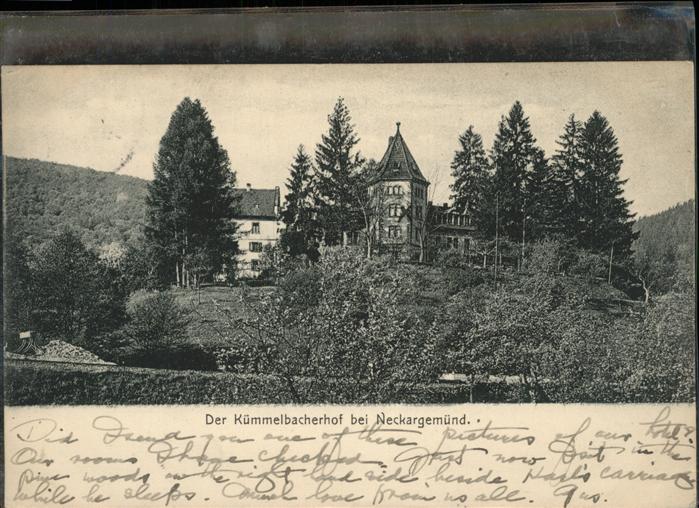 Der Kümmelbacherhof bei Neckargemünd.
Did I send you one of these pictures of our hotel?
Our rooms I have checked. Just now I sit in the
pine woods on the right hand side beside Hasl's carriage
while he sleeps. Much love from us all. Gus.